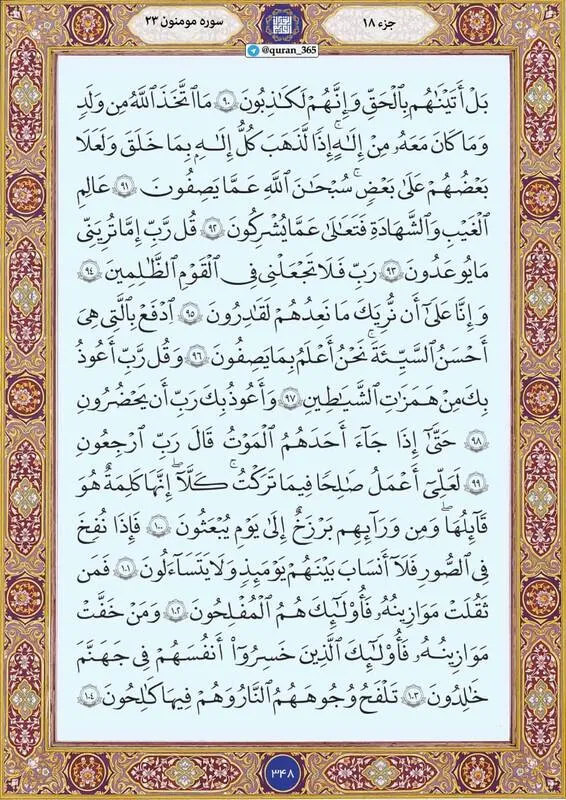 سوره مومنون ۲۳
جزء ۱۸
@quran_365
بَلْ أَتَيْنَٰهُم بِٱلْحَقِّ وَإِنَّهُمْ لَكَٰذِبُونَ ۹۰ مَا ٱتَّخَذَ ٱللَّهُ مِن وَلَدٍ
وَمَا كَانَ مَعَهُۥ مِنْ إِلَٰهٍ ۚ إِذًا لَّذَهَبَ كُلُّ إِلَٰهٍۭ بِمَا خَلَقَ وَلَعَلَا
بَعْضُهُمْ عَلَىٰ بَعْضٍ ۚ سُبْحَٰنَ ٱللَّهِ عَمَّا يَصِفُونَ ۹۱ عَٰلِمِ
ٱلْغَيْبِ وَٱلشَّهَٰدَةِ فَتَعَٰلَىٰ عَمَّا يُشْرِكُونَ ۹۲ قُل رَّبِّ إِمَّا تُرِيَنِّي
مَا يُوعَدُونَ ۹۳ رَبِّ فَلَا تَجْعَلْنِي فِي ٱلْقَوْمِ ٱلظَّٰلِمِينَ ۹۴
وَإِنَّا عَلَىٰٓ أَن نُّرِيَكَ مَا نَعِدُهُمْ لَقَٰدِرُونَ ۹۵ ٱدْفَعْ بِٱلَّتِي هِيَ
أَحْسَنُ ٱلسَّيِّئَةَ ۚ نَحْنُ أَعْلَمُ بِمَا يَصِفُونَ ۹۶ وَقُل رَّبِّ أَعُوذُ
بِكَ مِنْ هَمَزَٰتِ ٱلشَّيَٰطِينِ ۹۷ وَأَعُوذُ بِكَ رَبِّ أَن يَحْضُرُونِ
۹۸ حَتَّىٰٓ إِذَا جَآءَ أَحَدَهُمُ ٱلْمَوْتُ قَالَ رَبِّ ٱرْجِعُونِ
۹۹ لَعَلِّيٓ أَعْمَلُ صَٰلِحًا فِيمَا تَرَكْتُ ۚ كَلَّآ ۖ إِنَّهَا كَلِمَةٌ هُوَ
قَآئِلُهَا ۖ وَمِن وَرَآئِهِم بَرْزَخٌ إِلَىٰ يَوْمِ يُبْعَثُونَ ۱۰۰ فَإِذَا نُفِخَ
فِي ٱلصُّورِ فَلَآ أَنسَابَ بَيْنَهُمْ يَوْمَئِذٍ وَلَا يَتَسَآءَلُونَ ۱۰۱ فَمَن
ثَقُلَتْ مَوَٰزِينُهُۥ فَأُو۟لَٰٓئِكَ هُمُ ٱلْمُفْلِحُونَ ۱۰۲ وَمَنْ خَفَّتْ
مَوَٰزِينُهُۥ فَأُو۟لَٰٓئِكَ ٱلَّذِينَ خَسِرُوٓا۟ أَنفُسَهُمْ فِي جَهَنَّمَ
خَٰلِدُونَ ۱۰۳ تَلْفَحُ وُجُوهَهُمُ ٱلنَّارُ وَهُمْ فِيهَا كَٰلِحُونَ ۱۰۴
۳۴۸